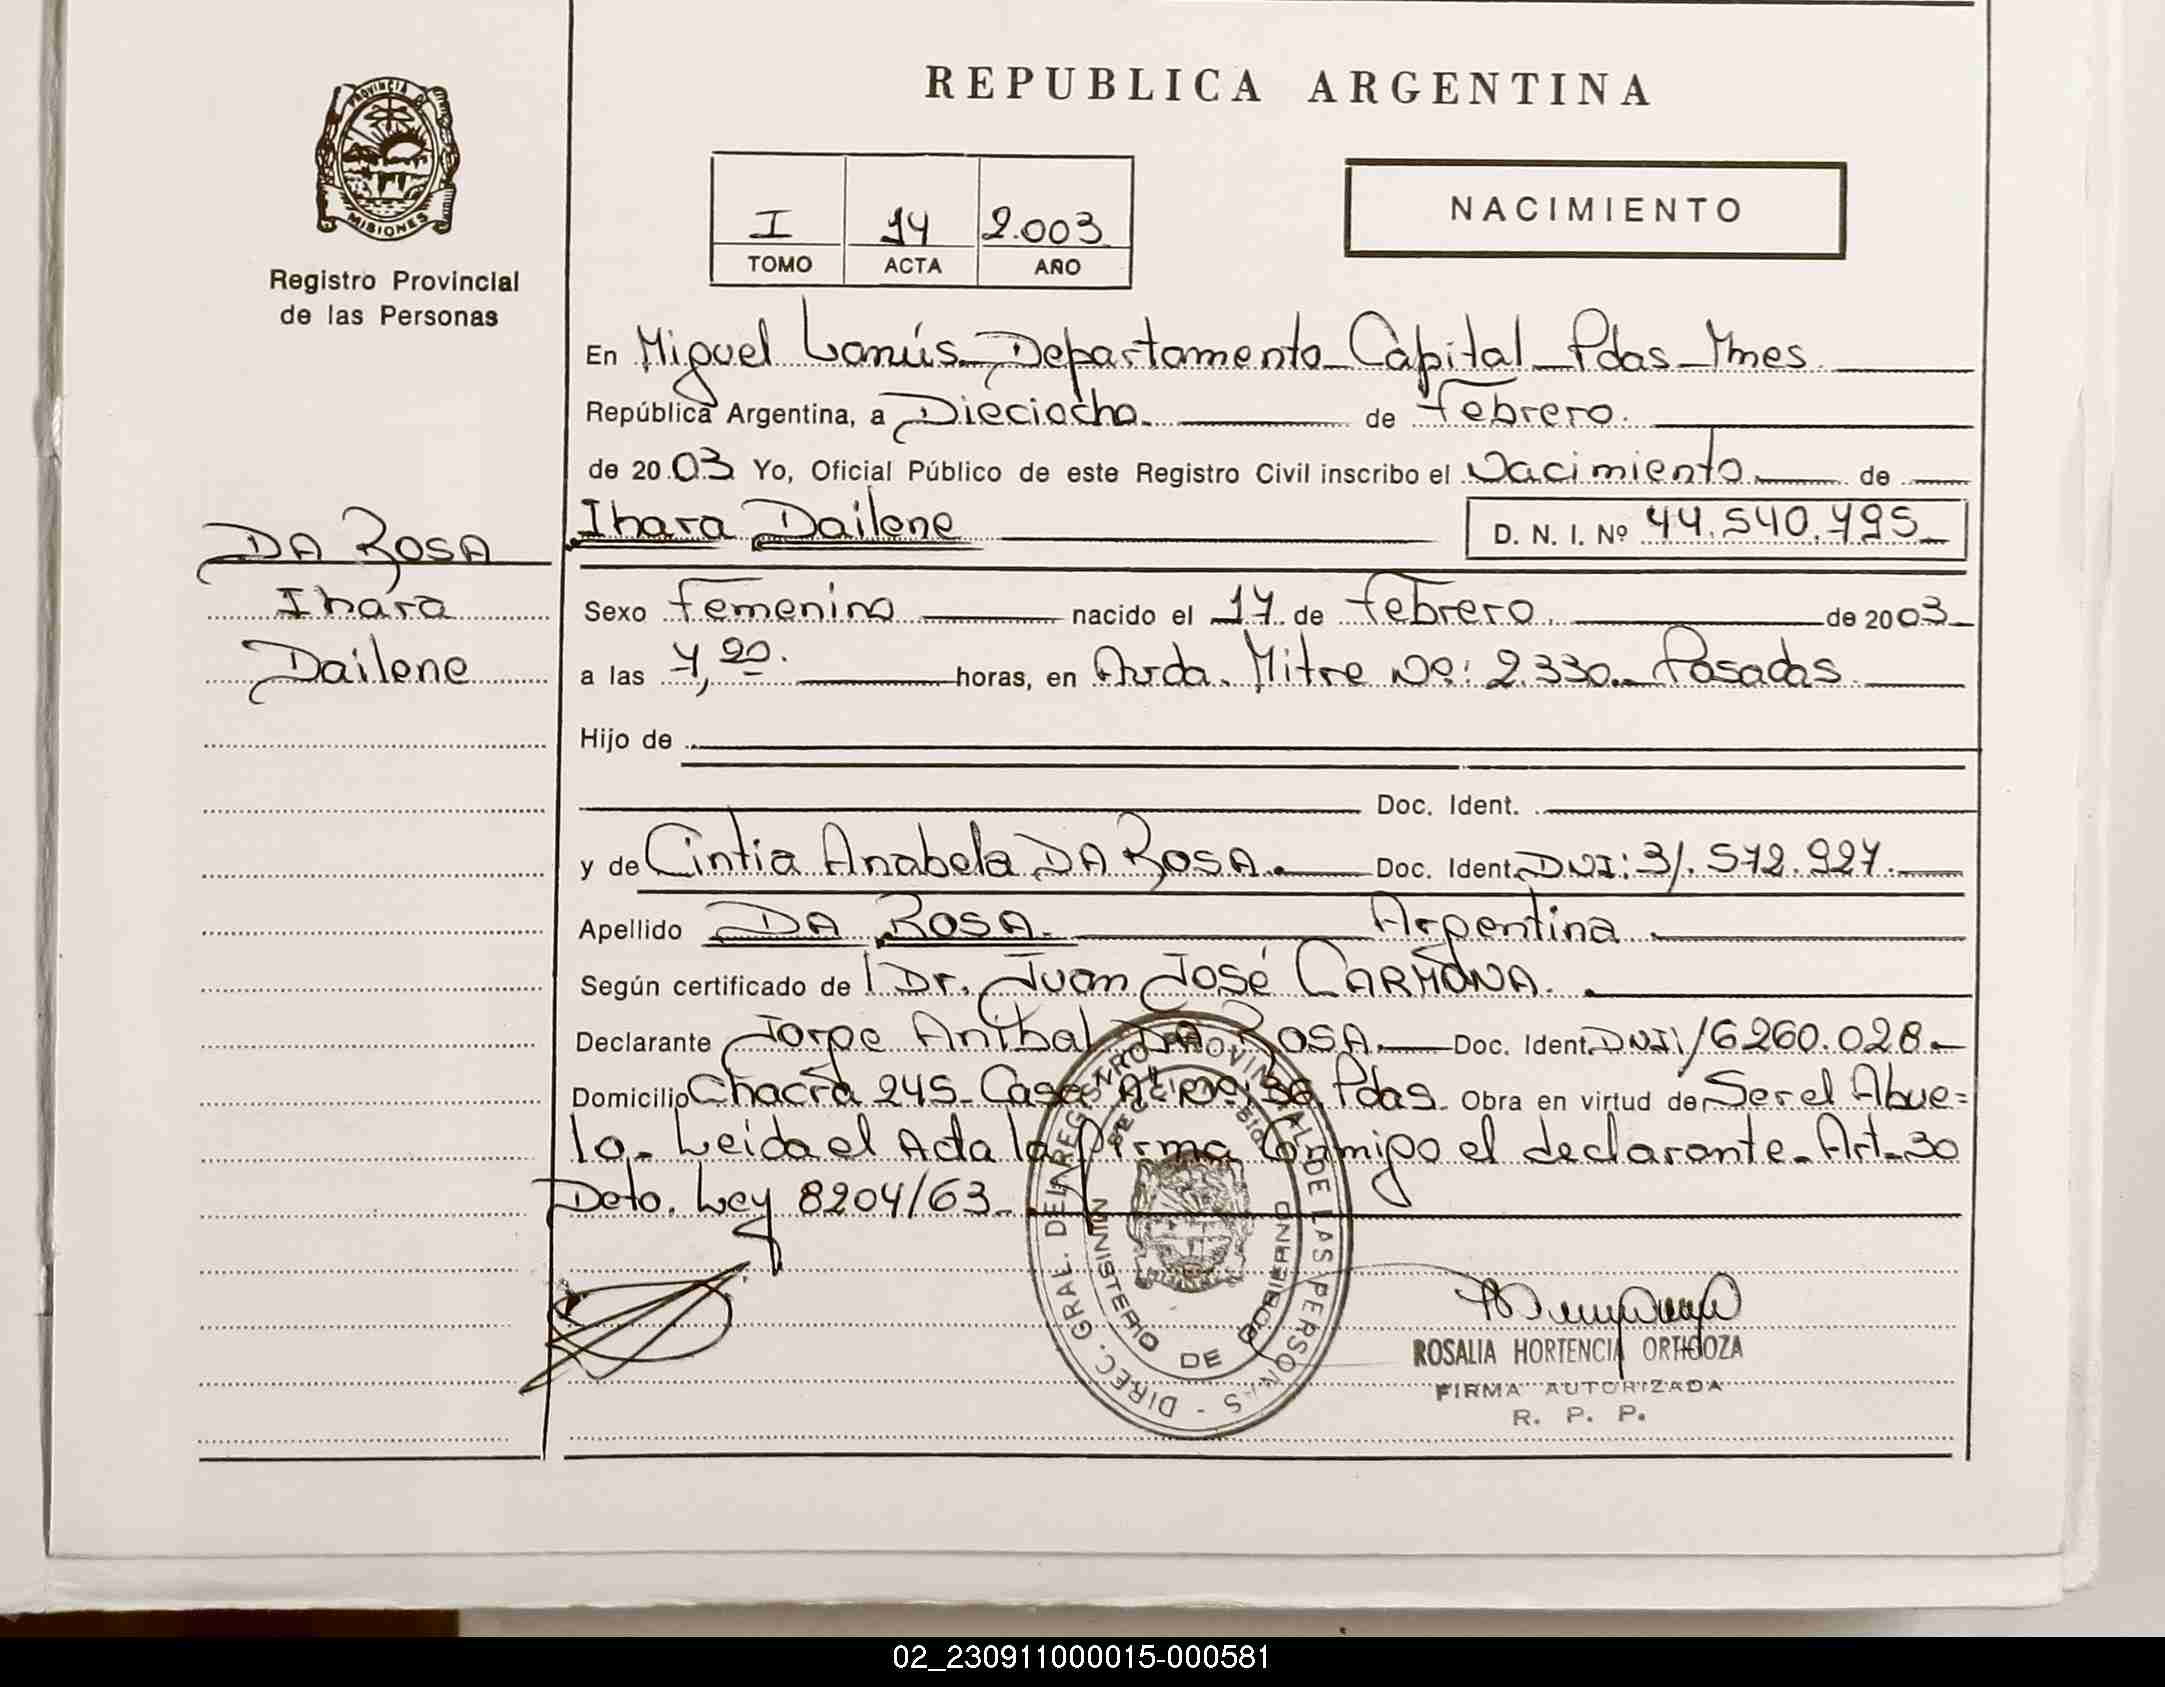 REPUBLICA ARGENTINA
PROVINCIA DE
MISIONES
Registro Provincial
de las Personas
I 14 2.003
TOMO ACTA AÑO
NACIMIENTO
En Miguel Lanús Departamento Capital Pdas Mnes
República Argentina, a Dieciocho de Febrero.
de 2003 Yo, Oficial Público de este Registro Civil inscribo el Nacimiento de
DA ROSA
Ihara
Dailene
Ihara Dailene
D. N. I. Nº 44.540.795
Sexo Femenino nacido el 17 de Febrero de 2003
a las 7,20. horas, en Avda. Mitre Nº: 2.330. Posadas.
Hijo de
Doc. Ident.
y de Cintia Anabela DA ROSA. Doc. Ident. DNI: 31.572.927.
Apellido DA ROSA. Argentina
Según certificado de Dr. Juan José CARMONA.
Declarante Jorge Anibal DA ROSA. Doc. Ident. DNI: 16260.028.
Domicilio Chacra 245 - Casa "A" Nº: 36 Pdas. Obra en virtud de Ser el Abue=
lo. Leida el Acta la firma Conmigo el declarante. Art. 30
Dcto. Ley 8204/63.
DIREC. GRAL. DEL REGISTRO PROVINCIAL DE LAS PERSONAS
MINISTERIO DE GOBIERNO
ROSALIA HORTENCIA ORTIGOZA
FIRMA AUTORIZADA
R. P. P.
02_230911000015-000581